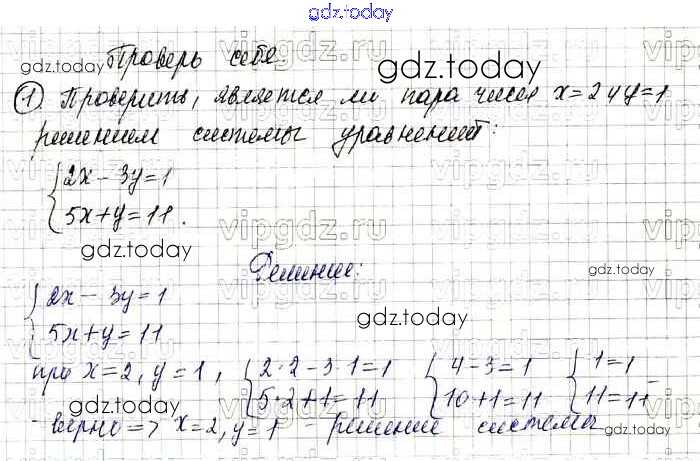 gdz.today
Проверь себя.
gdz.today gdz.today
① Проверить, является ли пара чисел x=2 и y=1
решением системы уравнений:
{2x-3y=1
{5x+y=11.
vipgdz.ru
gdz.today
Решение: gdz.today
{2x-3y=1
{5x+y=11
gdz.today
при x=2, y=1, {2·2-3·1=1 {4-3=1 {1=1
{5·2+1=11 {10+1=11 {11=11 -
gdz.today
- верно => x=2, y=1 - решение системы
gdz.today